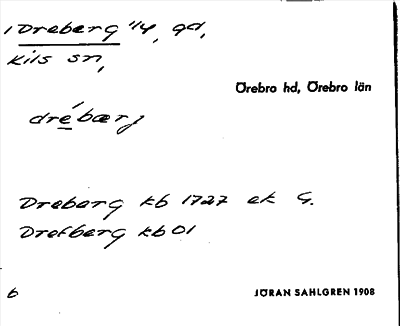 1 Dreberg 1/4, gd,
Kils sn,
Örebro hd, Örebro län
drébærj
Dreberg kb 1727 ek G.
Drefberg kb 01
6
JÖRAN SAHLGREN 1908